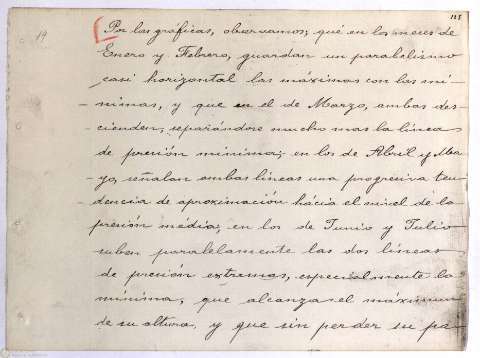 115
c. 19
Por las gráficas, observamos; que en los meses de
Enero y Febrero, guardan un parabelismo
casi horizontal las máximas con las mí-
nimas, y que en el de Marzo, ambas des-
cienden, separándose mucho mas la línea
de presión mínima; en los de Abril y Ma-
yo, señalan ambas líneas una progresiva ten-
dencia de aproximación hácia el nivel de la
presión média; en los de Junio y Julio
suben paralelamente las dos líneas
de presión extremas, especialmente la
mínima, que alcanza el máximum
de su altura, y que sin perder su pa-